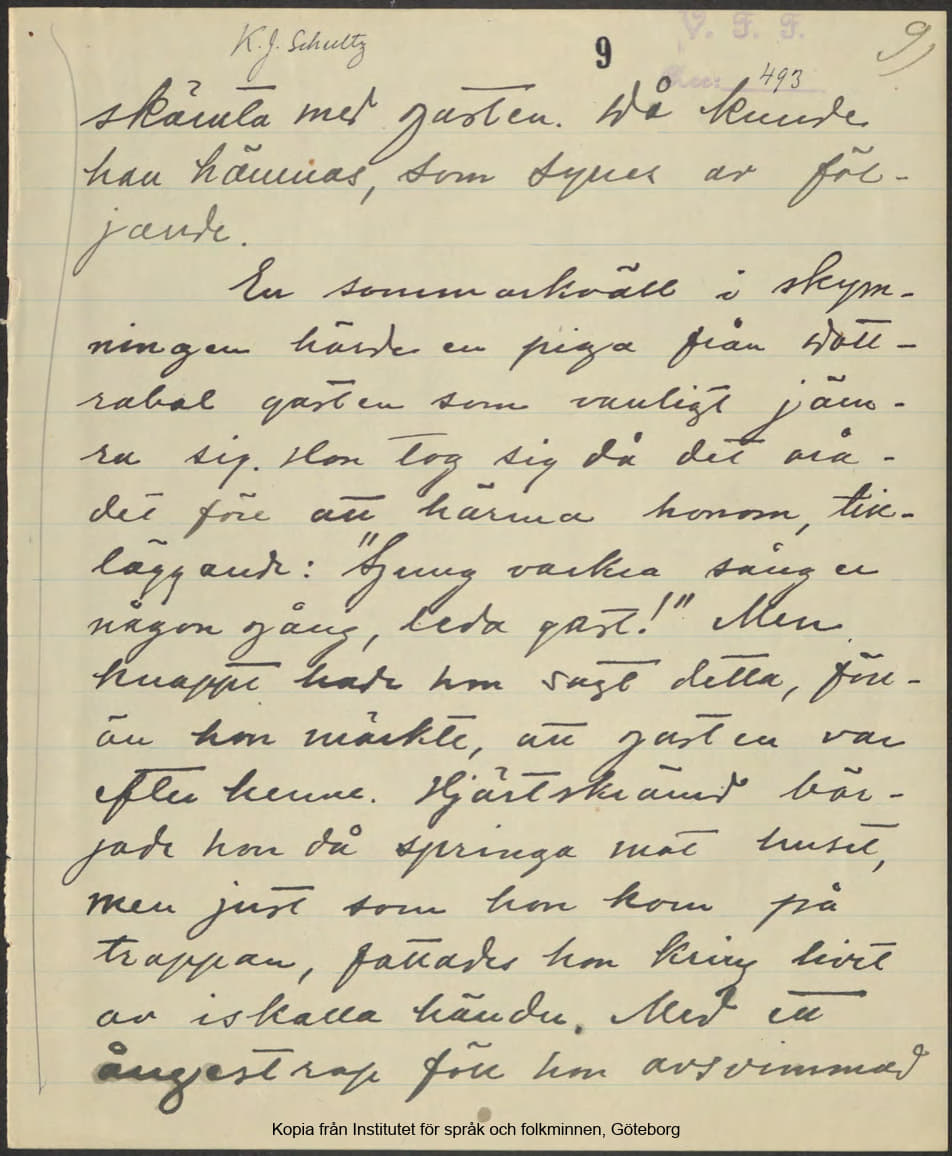 K. J. Schultz
9
V. F. F.
493
9)
skämta med gasten. Då kunde
han hämnas, som synes av föl-
jande.
En sommarkväll i skym-
ningen hörde en piga från Dött-
rabol gasten som vanligt jäm-
ra sig. Hon tog sig då det orå-
det före att härma honom, till-
läggande: "Sjung vackra sånger
någon gång, leda gast!" Men
knappt hade hon sagt detta, förr-
än hon märkte, att gasten var
efter henne. Hjärtskrämd bör-
jade hon då springa mot huset,
men just som hon kom på
trappan, fattades hon kring livet
av iskalla händer. Med ett
ångestrop föll hon avsvimmad
Kopia från Institutet för språk och folkminnen, Göteborg